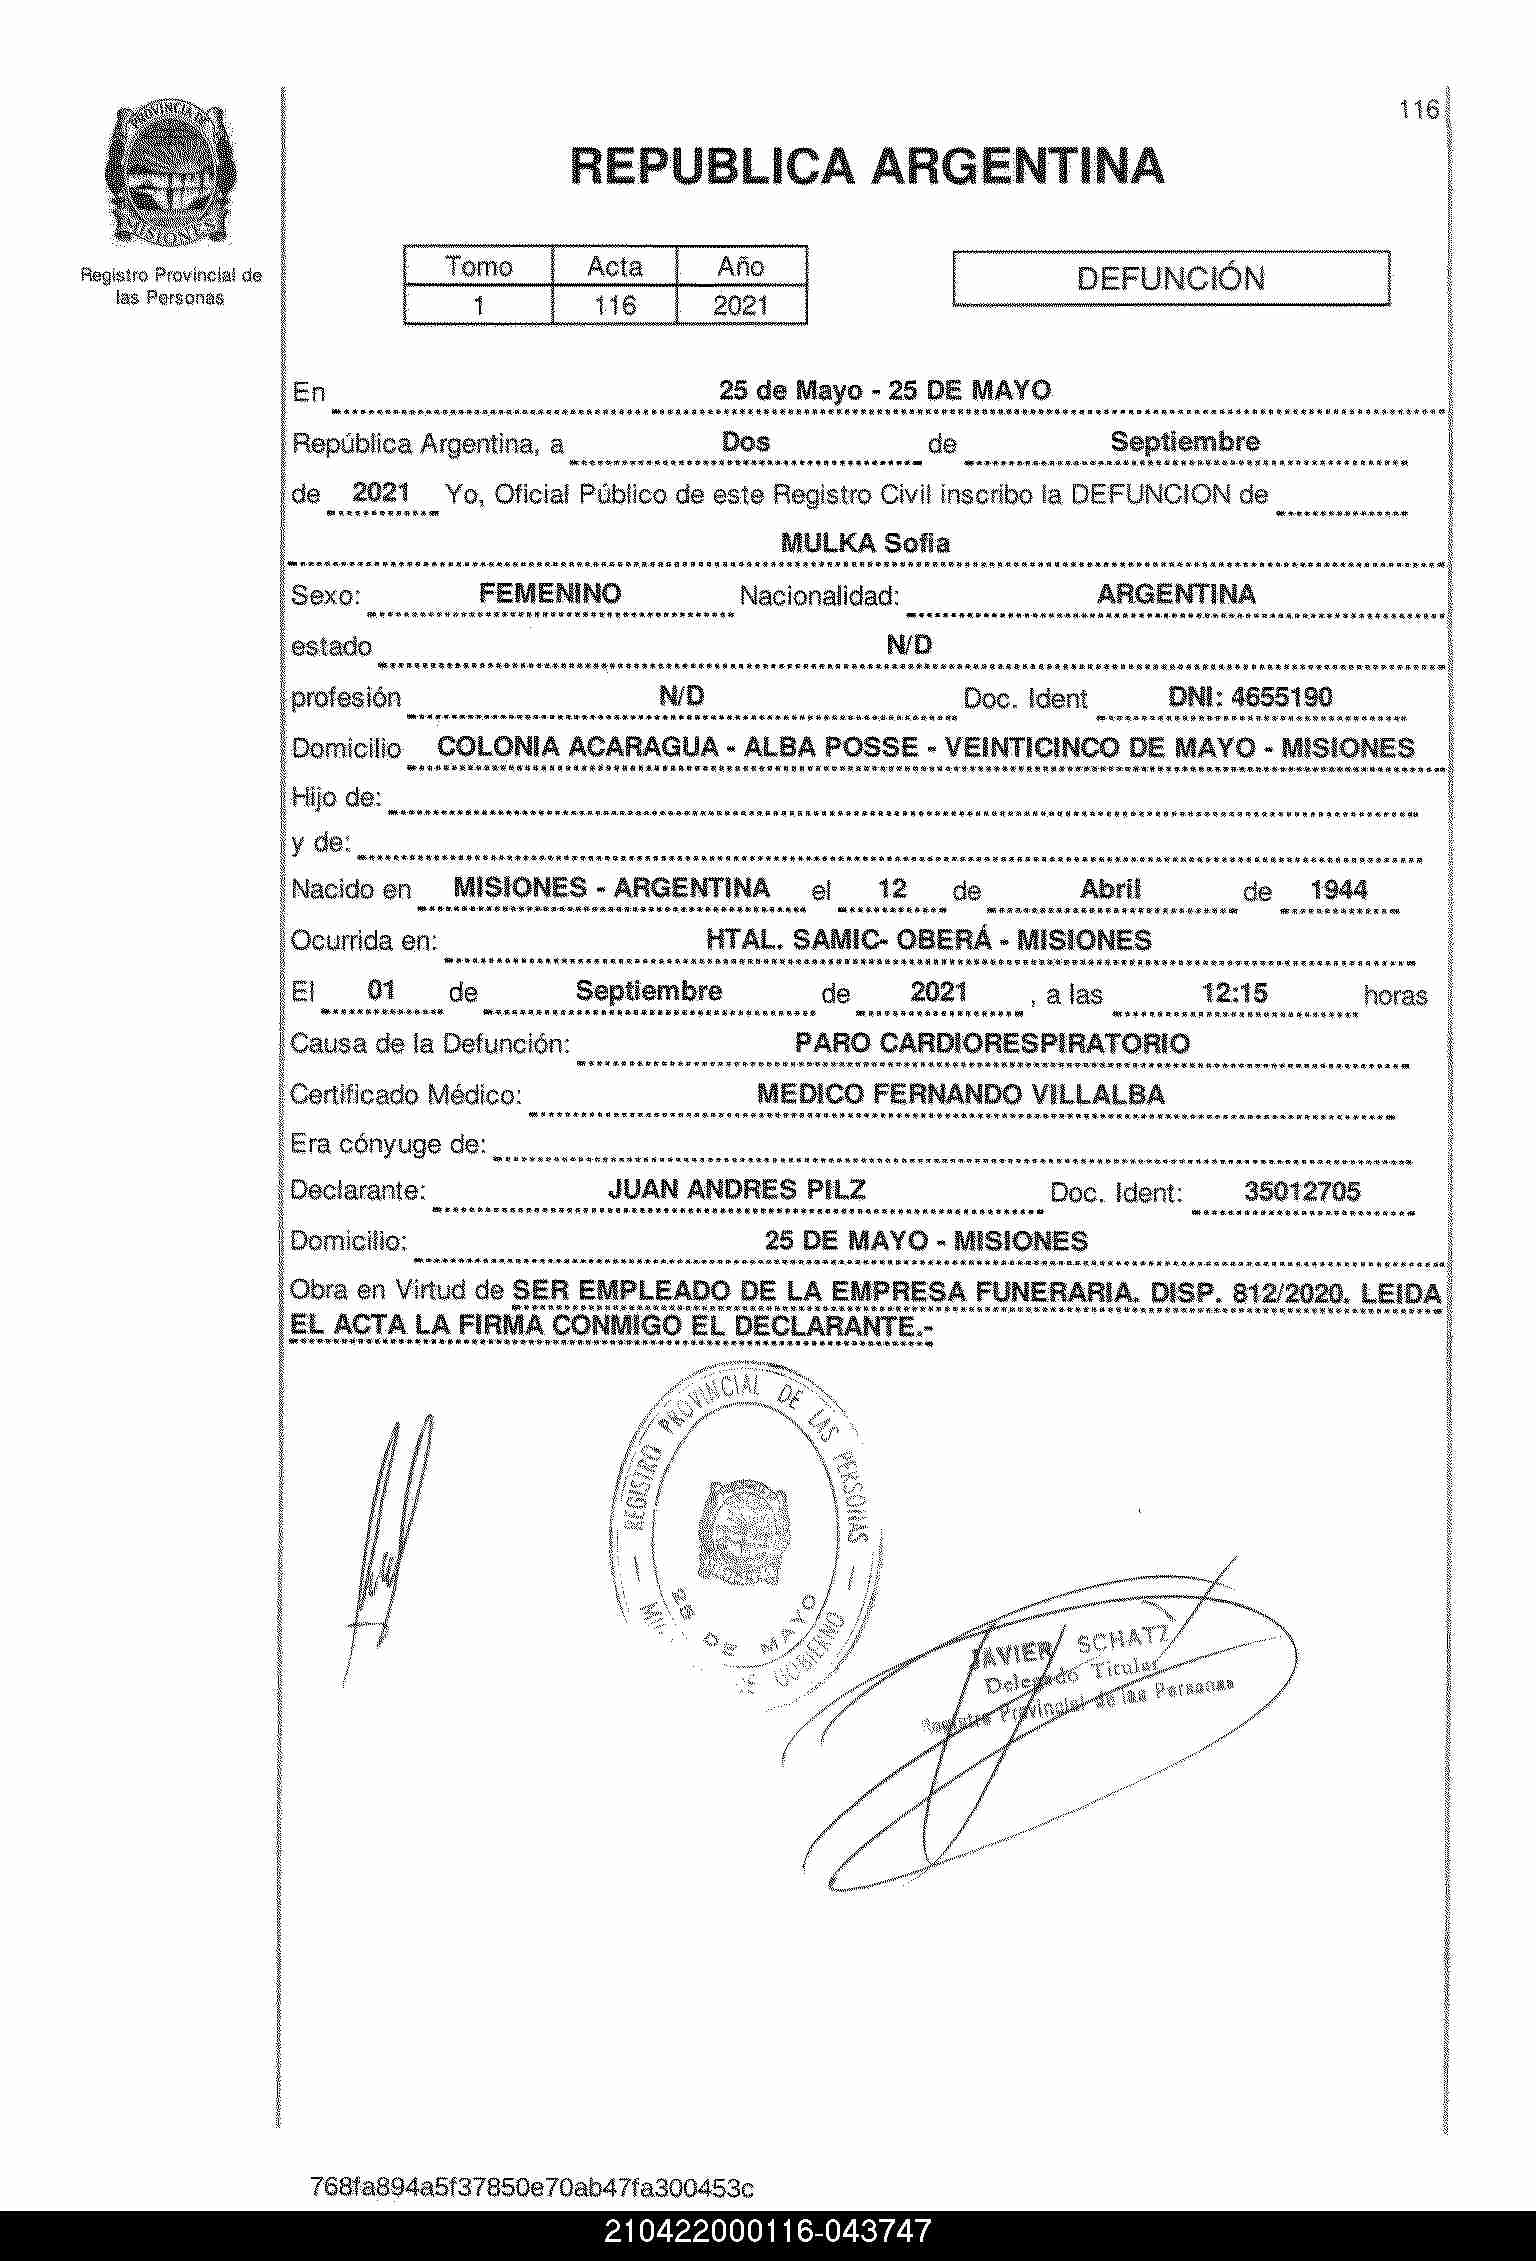 116
PROVINCIA DE
MISIONES
Registro Provincial de
las Personas
REPUBLICA ARGENTINA
Tomo Acta Año
1 116 2021
DEFUNCIÓN
En 25 de Mayo - 25 DE MAYO
República Argentina, a Dos de Septiembre
de 2021 Yo, Oficial Público de este Registro Civil inscribo la DEFUNCION de
MULKA Sofia
Sexo: FEMENINO Nacionalidad: ARGENTINA
estado N/D
profesión N/D Doc. Ident DNI: 4655190
Domicilio COLONIA ACARAGUA - ALBA POSSE - VEINTICINCO DE MAYO - MISIONES
Hijo de:
y de:
Nacido en MISIONES - ARGENTINA el 12 de Abril de 1944
Ocurrida en: HTAL. SAMIC- OBERÁ - MISIONES
El 01 de Septiembre de 2021 , a las 12:15 horas
Causa de la Defunción: PARO CARDIORESPIRATORIO
Certificado Médico: MEDICO FERNANDO VILLALBA
Era cónyuge de:
Declarante: JUAN ANDRES PILZ Doc. Ident: 35012705
Domicilio: 25 DE MAYO - MISIONES
Obra en Virtud de SER EMPLEADO DE LA EMPRESA FUNERARIA. DISP. 812/2020. LEIDA
EL ACTA LA FIRMA CONMIGO EL DECLARANTE.-
REGISTRO PROVINCIAL DE LAS PERSONAS
25 DE MAYO
DE GOBIERNO
JAVIER SCHATZ
Delegado Titular
Registro Provincial de las Personas
768fa894a5f37850e70ab47fa300453c
210422000116-043747